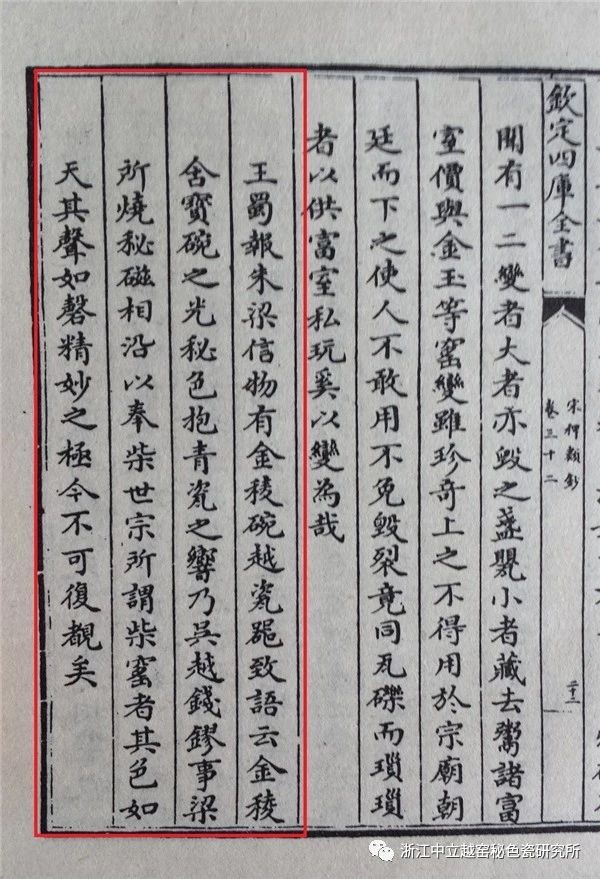 欽定四庫全書
宋稗類鈔
卷三十二
二十二
開有一二變者大者亦毀之盞甖小者藏去鬻諸富
室價與金玉等窰變雖珍奇上之不得用於宗廟朝
廷而下之使人不敢用不免毀裂竟同瓦礫而瑣瑣
者以供富室私玩奚以變為哉
王蜀報朱梁信物有金稜碗越瓷器致語云金稜
含寶碗之光秘色抱青瓷之響乃吳越錢鏐事梁
所燒秘磁相沿以奉柴世宗所謂柴窰者其色如
天其聲如磬精妙之極今不可復覩矣
浙江中立越窑秘色瓷研究所